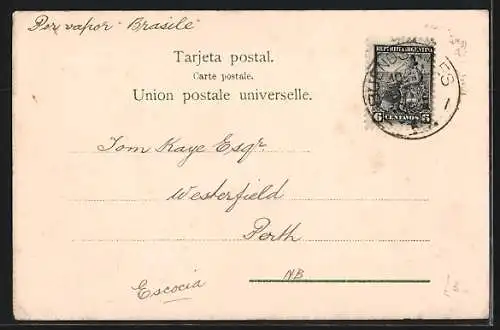 Por vapor "Brasile"
Tarjeta postal.
Carte postale.
Union postale universelle.
REPUBLICA ARGENTINA
CENTAVOS 5
BUENOS AIRES
Tom Kaye Esqr.
Westerfield
Perth
NB
Escocia